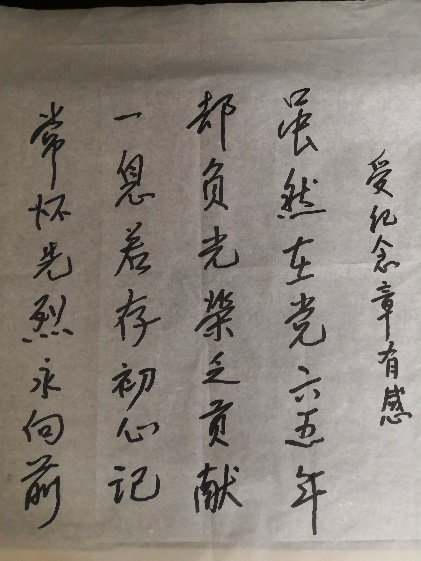 受纪念章有感
虽然在党六五年
却负光荣乏贡献
一息若存初心记
常怀先烈永向前